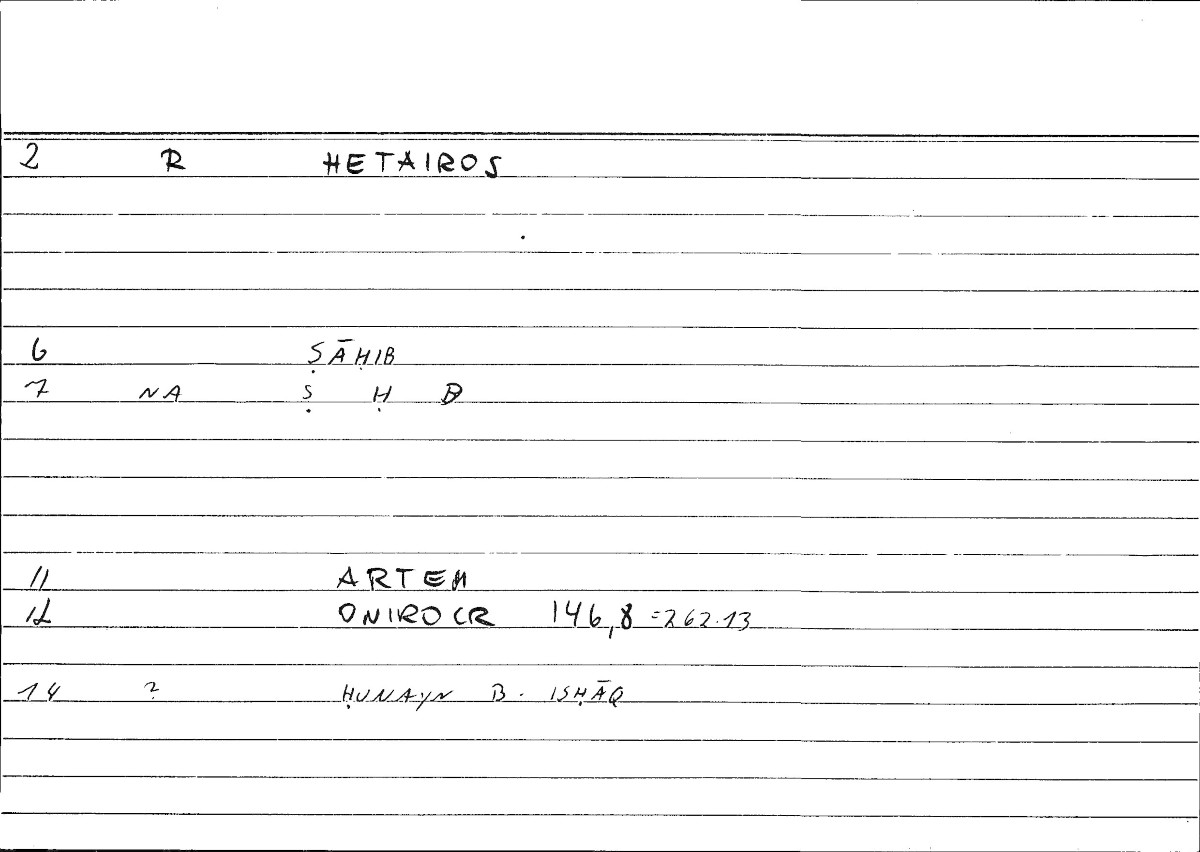 2 R HETAIROS
6 ṢĀḤIB
7 NA Ṣ Ḥ B
11 ARTEM
12 ONIROCR 146,8 =262.13
14 2 ḤUNAYN B. ISḤĀQ